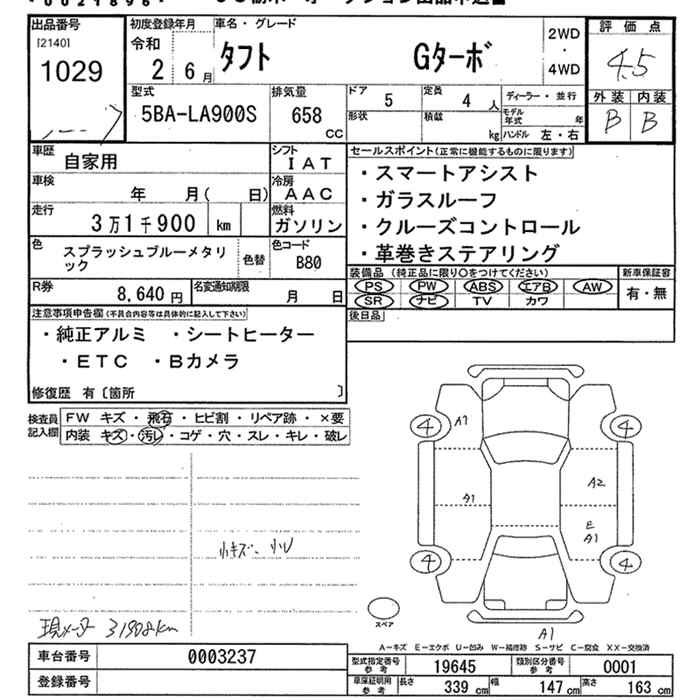 *0021896*
出品番号
[2140]
1029
初度登録年月
令和
2 6月
車名・グレード
タフト Gターボ
2WD
・
4WD
評価点
4.5
外装 内装
B B
型式
5BA-LA900S
排気量
658
CC
ドア
5
定員
4 人
形状
積載
kg
ディーラー・並行
モデル年式 年
ハンドル 左・右
車歴
自家用
シフト
IAT
車検
年 月( 日)
冷房
AAC
走行
3万1千900 km
燃料
ガソリン
色
スプラッシュブルーメタリック
色替
色コード
B80
R券
8,640円
名変通知期限
月 日
セールスポイント(正常に機能するものに限ります)
・スマートアシスト
・ガラスルーフ
・クルーズコントロール
・革巻きステアリング
装備品(純正品に限り○をつけてください)
PS PW ABS エアB AW
SR ナビ TV カワ
新車保証書
有・無
後日品
注意事項申告欄(不具合内容等は具体的に記入して下さい)
・純正アルミ ・シートヒーター
・ETC ・Bカメラ
修復歴 有〔箇所 〕
検査員記入欄
FW キズ・飛石・ヒビ割・リペア跡・×要
内装 キズ・汚レ・コゲ・穴・スレ・キレ・破レ
4 A1 4
A1 A2
E
A1
4 4
小キズ、小U
スペア
A1
現メーター 31908km
A-キズ E-エクボ U-凹み W-補修跡 S-サビ C-腐食 XX-交換済
車台番号 0003237
登録番号
型式指定番号参考 19645 類別区分番号参考 0001
車庫証明用参考 長さ 339cm 幅 147cm 高さ 163cm